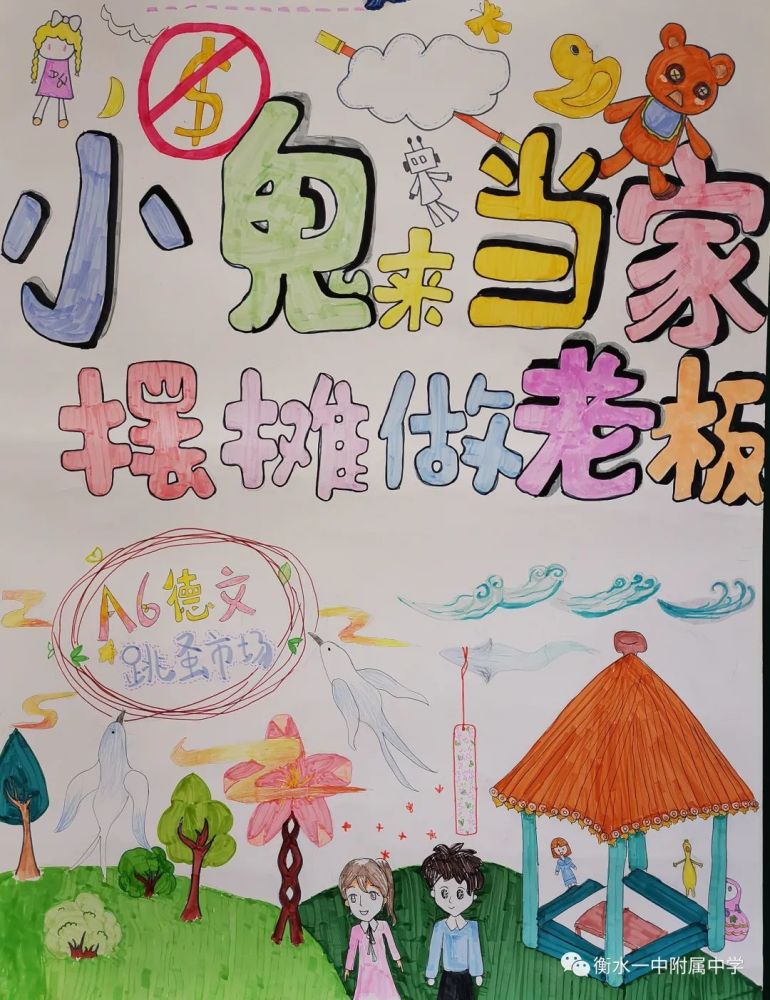 小鬼来当家
摆摊做老板
A6德文
跳蚤市场
衡水一中附属中学